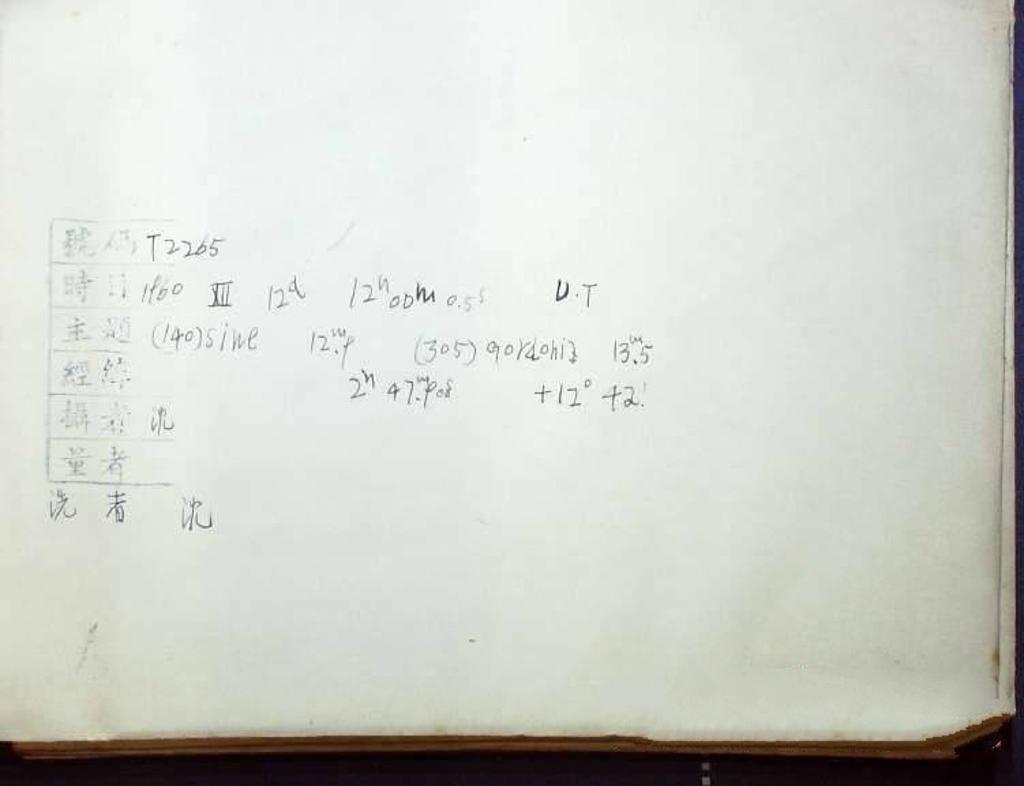 號碼 T2265
時日 1960 XII 12d 12h 00m 0.5s U.T
主題 (140)sine 12.m9 (305) gordonia 13.m5
經緯 2h 47.m908 +12° 42!
攝者 沈
量者
洗者 沈